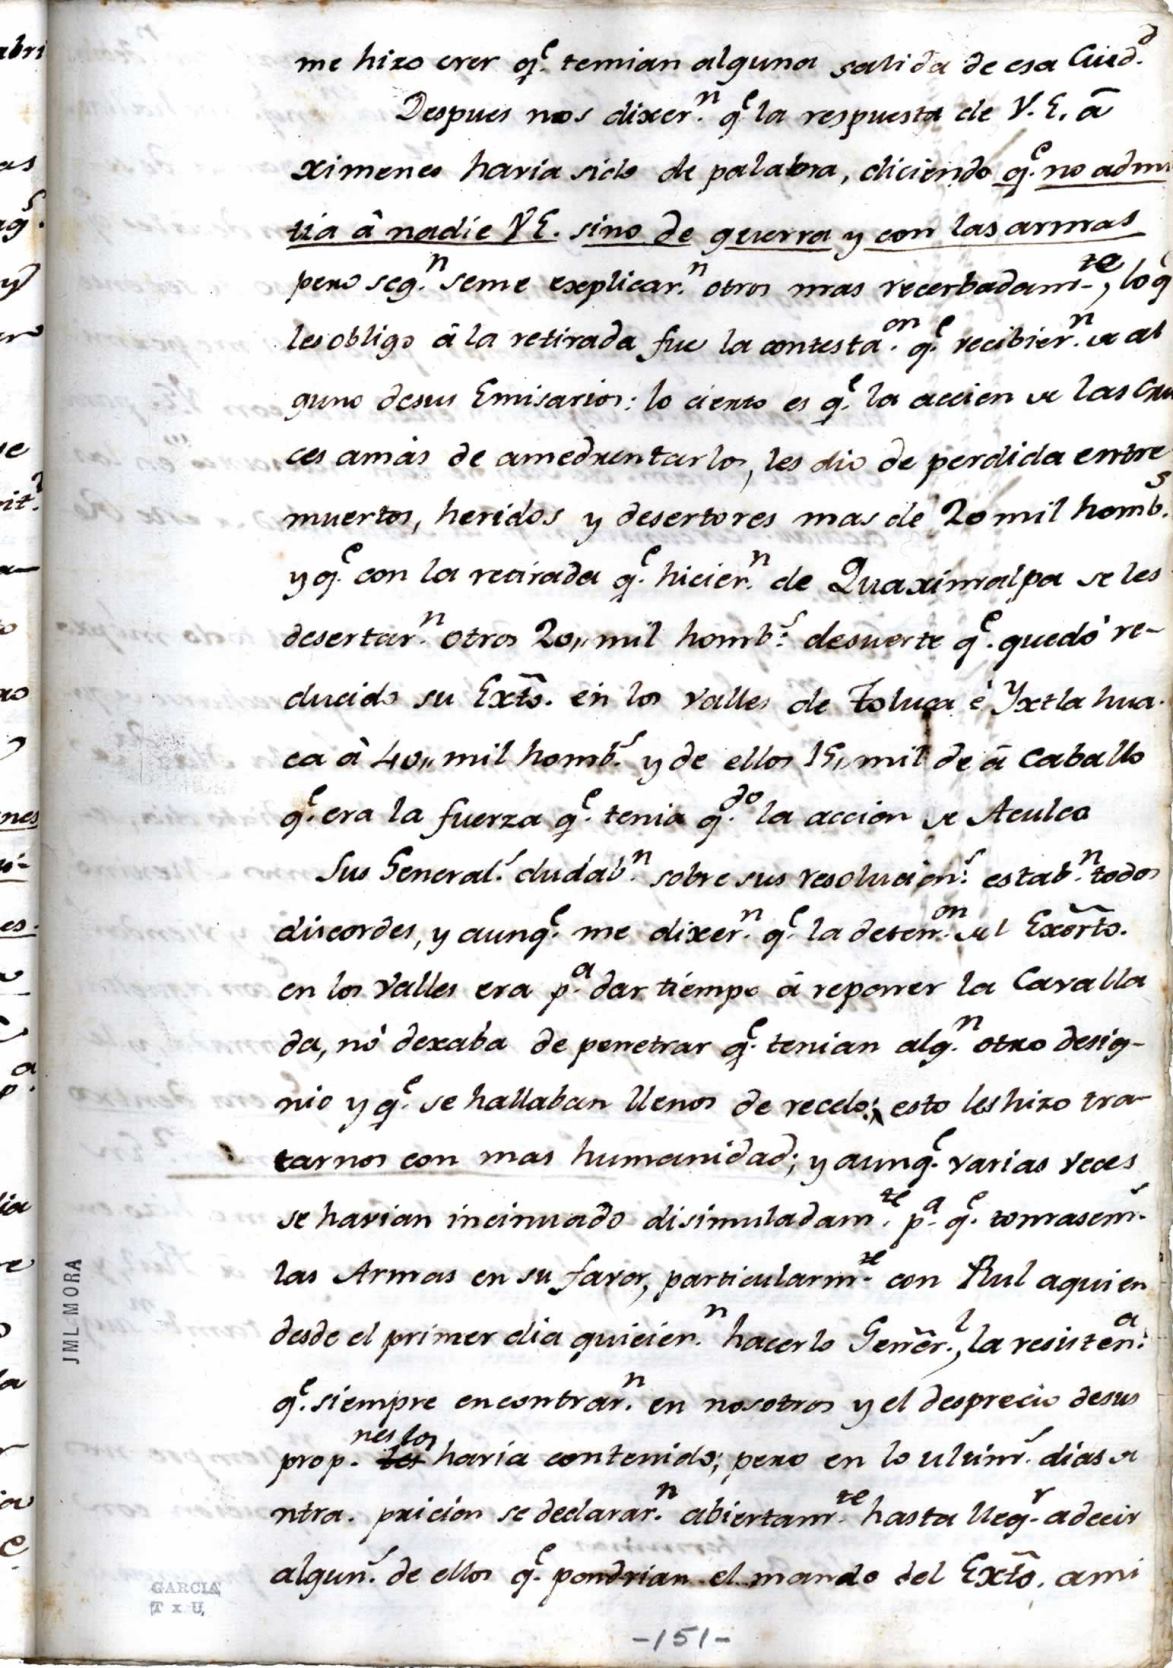 me hizo crer q.^e temian alguna salida de esa Ciud.^d
Despues nos dixer.^n q.^e la respuesta de V. E. â
Ximenes havia sido de palabra, diciendo q.^e no admi
tia â nadie V E. sino de guerra y con las armas
pero seg.^n seme explicar.^n otros mas recerbadam.^te, lo q^e
les obligo â la retirada fue la contesta.^on q.^e recibier.^n de al
guno desus Emisarios: lo cierto es q.^e la accion de las Cru
ces amàs de amedrentarlos, les dio de perdida entre
muertos, heridos y desertores mas de 20 mil homb.^s
y q.^e con la retirada q.^e hicier.^n de Quaximalpa se les
desertar.^n otros 20,, mil homb.^s desuerte q.^e quedó re-
ducido su Exto. en los Valles de Toluca è Yxtlahua-
ca â 40,, mil homb.^s y de ellos 15, mil de â Caballo
q.^e era la fuerza q.^e tenia q.^do la accion de Aculco
Sus General.^s dudab.^n sobre sus resolucion.^s estab.^n todos
discordes, y aunq.^e me dixer.^n q.^e la deten.^on del Exerto.
en los Valles era p.^a dar tiempo â reponer la Cavalla
da, no dexaba de penetrar q.^e tenian alg.^n otro desig-
nio y q.^e se hallaban llenos de recelos; esto les hizo tra-
tarnos con mas humanidad; y aunq.^e varias veces
se havian incinuado disimuladam.^te p.^a q.^e tomasem.^s
las Armas en su favor, particularm.^te con Rul aquien
desde el primer dia quicier.^n hacerlo Gener.^l, la resisten.^a
q.^e siempre encontrar.^n en nosotros y el desprecio desus
prop.^nes los havia contenido; pero en lo ultim.^s dias de
ntra. pricion se declarar.^n abiertam.^te hasta lleg.^r adecir
algun.^s de ellos q.^e pondrian el mando del Exto. ami
-151-
JML MORA
GARCIA
T x U